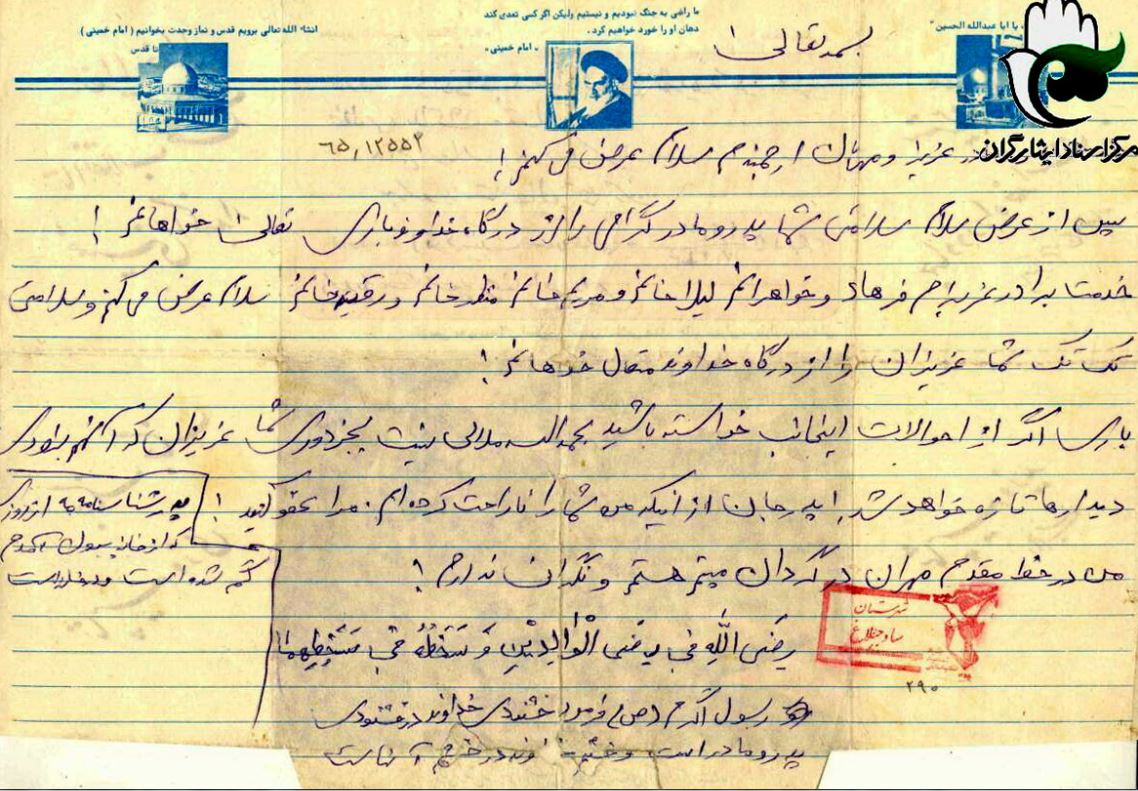 انشاء الله تعالی برویم قدس و نماز وحدت بخوانیم ( امام خمینی )
تا قدس
ما راضی به جنگ نبودیم و نیستیم ولیکن اگر کسی تعدی کند
دهان او را خورد خواهیم کرد.
« امام خمینی »
یا ابا عبدالله الحسین"
بسمه تعالی
مرکز اسناد ایثارگران
۶۵,۱۲۵۵۲
عزیز و مهربان ارجمندم سلام عرض می کنم!
پس از عرض سلام سلامتی شما پدر و مادر گرامی را از درگاه خداوند باری تعالی خواهانم !
خدمت برادر عزیزم فرهاد و خواهرانم لیلا خانم و مریم خانم منظر خانم و رقیه خانم سلام عرض می کنم و سلامتی
تک تک شما عزیزان را از درگاه خداوند متعال خواهانم !
باری اگر از احوالات اینجانب خواسته باشید بحمدالله ملالی نیست بجز دوری شما عزیزان که آنهم بزودی
دیدارها تازه خواهد شد! پدر جان از اینکه من شما را ناراحت کرده ام. مرا عفو کنید !
من در خط مقدم مهران در گردان میثم هستم و نگرانی ندارم !
پدر شناسنامه ما از روز
که از خانه بیرون آمدم
گم شده است
رضی الله فی رضی الوالدین و سخطه فی سخطهما
رسول اکرم (ص) فرمود خشنودی خداوند در خشنودی
پدر و مادر است و خشم در خشم آنهاست
شهرستان
۲۹۰